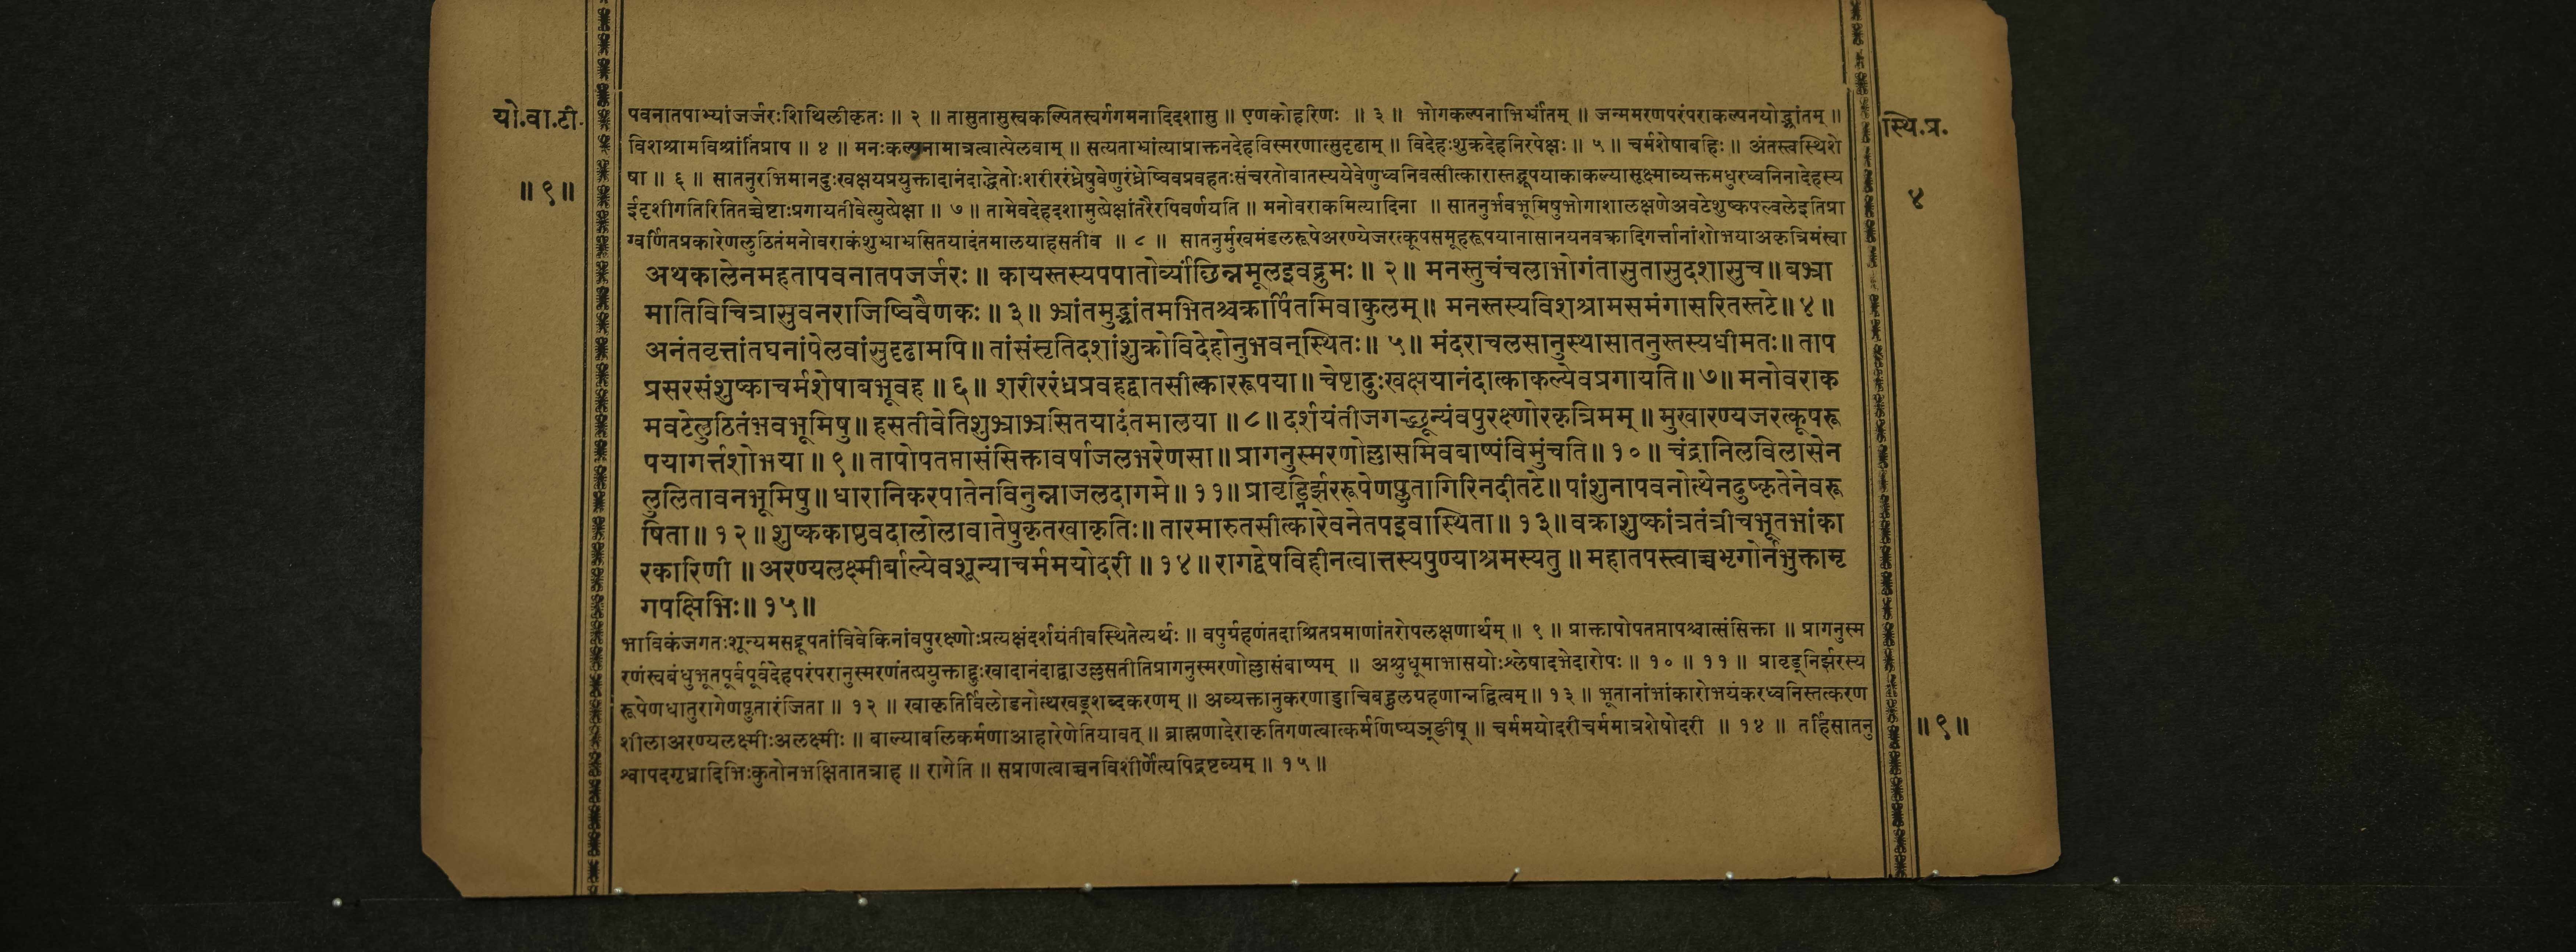 यो.वा.टी.
॥९॥
पवनातपाभ्यांजर्जरःशिथिलीकृतः ॥ २ ॥ तासुतासुस्वकल्पितस्वर्गगमनादिदशासु ॥ एणकोहरिणः ॥ ३ ॥ भोगकल्पनाभिर्भ्रांतम् ॥ जन्ममरणपरंपराकल्पनयोद्भ्रांतम् ॥
विशश्रामविश्रांतिंप्राप ॥ ४ ॥ मनःकल्पनामात्रत्वात्पेलवाम् ॥ सत्यताभ्रांत्याप्राक्तनदेहविस्मरणात्सुदृढाम् ॥ विदेहःशुक्रदेहनिरपेक्षः ॥ ५ ॥ चर्मशेषाबहिः ॥ अंतस्त्वस्थिशे
षा ॥ ६ ॥ सातनुरभिमानदुःखक्षयप्रयुक्तादानंदाद्धेतोःशरीररंध्रेषुवेणुरंध्रेष्विवप्रवहतःसंचरतोवातस्ययेवेणुध्वनिवत्सीत्कारास्तद्रूपयाकाकल्यासूक्ष्माव्यक्तमधुरध्वनिनादेहस्य
ईदृशीगतिरितितच्चेष्टाःप्रगायतीवेत्युत्प्रेक्षा ॥ ७ ॥ तामेवदेहदशामुत्प्रेक्षांतरैरपिवर्णयति ॥ मनोवराकमित्यादिना ॥ सातनुर्भवभूमिषुभोगाशालक्षणेअवटेशुष्कपल्वलेइतिप्रा
ग्वर्णितप्रकारेणलुठितंमनोवराकंशुभ्राभ्रसितयादंतमालयाहसतीव ॥ ८ ॥ सातनुर्मुखमंडलरूपेअरण्येजरत्कूपसमूहरूपयानासानयनवक्रादिगर्त्तानांशोभयाअकृत्रिमंस्वा
अथकालेनमहतापवनातपजर्जरः ॥ कायस्तस्यपपातोर्व्यांछिन्नमूलइवद्रुमः ॥ २ ॥ मनस्तुचंचलाभोगंतासुतासुदशासुच ॥ बभ्रा
मातिविचित्रासुवनराजिष्विवैणकः ॥ ३ ॥ भ्रांतमुद्भ्रांतमभितश्चक्रार्पितमिवाकुलम् ॥ मनस्तस्यविशश्रामसमंगासरितस्तटे ॥ ४ ॥
अनंतवृत्तांतघनांपेलवांसुदृढामपि ॥ तांसंसृतिदशांशुक्रोविदेहोनुभवन्स्थितः ॥ ५ ॥ मंदराचलसानुस्थासातनुस्तस्यधीमतः ॥ ताप
प्रसरसंशुष्काचर्मशेषाबभूवह ॥ ६ ॥ शरीररंध्रप्रवहद्वातसीत्काररूपया ॥ चेष्टादुःखक्षयानंदात्काकल्येवप्रगायति ॥ ७ ॥ मनोवराक
मवटेलुठितंभवभूमिषु ॥ हसतीवेतिशुभ्राभ्रसितयादंतमालया ॥ ८ ॥ दर्शयंतीजगच्छून्यंवपुरक्ष्णोरकृत्रिमम् ॥ मुखारण्यजरत्कूपरू
पयागर्त्तशोभया ॥ ९ ॥ तापोपतप्तासंसिक्तावर्षाजलभरेणसा ॥ प्रागनुस्मरणोल्लासमिवबाष्पंविमुंचति ॥ १० ॥ चंद्रानिलविलासेन
लुलितावनभूमिषु ॥ धारानिकरपातेनविनुन्नाजलदागमे ॥ ११ ॥ प्रावृड्निर्झररूपेणप्लुतागिरिनदीतटे ॥ पांशुनापवनोत्थेनदुष्कृतेनेवरू
षिता ॥ १२ ॥ शुष्ककाष्ठवदालोलावातेषुकृतखाकृतिः ॥ तारमारुतसीत्कारेवनेतपइवास्थिता ॥ १३ ॥ वक्राशुष्कांत्रतंत्रीचभूतभांका
रकारिणी ॥ अरण्यलक्ष्मीर्बाल्येवशून्याचर्ममयोदरी ॥ १४ ॥ रागद्वेषविहीनत्वात्तस्यपुण्याश्रमस्यतु ॥ महातपस्त्वाच्चभृगोर्नभुक्तामृ
गपक्षिभिः ॥ १५ ॥
भाविकंजगतःशून्यमसद्रूपतांविवेकिनांवपुरक्ष्णोःप्रत्यक्षंदर्शयंतीवस्थितेत्यर्थः ॥ वपुर्ग्रहणंतदाश्रितप्रमाणांतरोपलक्षणार्थम् ॥ ९ ॥ प्राक्तापोपतप्तापश्चात्संसिक्ता ॥ प्रागनुस्म
रणंस्वबंधुभूतपूर्वपूर्वदेहपरंपरानुस्मरणंतत्प्रयुक्ताद्दुःखादानंदाद्वाउल्लसतीतिप्रागनुस्मरणोल्लासंबाष्पम् ॥ अश्रुधूमाभासयोःश्लेषादभेदारोपः ॥ १० ॥ ११ ॥ प्रावृड्निर्झरस्य
रूपेणधातुरागेणप्लुतारंजिता ॥ १२ ॥ खाकृतिर्विलोडनोत्थखड्शब्दकरणम् ॥ अव्यक्तानुकरणाड्डाचिबहुलग्रहणान्नद्वित्वम् ॥ १३ ॥ भूतानांभांकारोभयंकरध्वनिस्तत्करण
शीलाअरण्यलक्ष्मीःअलक्ष्मीः ॥ बाल्याबलिकर्मणाआहारेणेतियावत् ॥ ब्राह्मणादेराकृतिगणत्वात्कर्मणिष्यञ्ङीष् ॥ चर्ममयोदरीचर्ममात्रशेषोदरी ॥ १४ ॥ तर्हिसातनु
श्वापदगृध्रादिभिःकुतोनभक्षितातत्राह ॥ रागेति ॥ सप्राणत्वाच्चनविशीर्णेत्यपिद्रष्टव्यम् ॥ १५ ॥
स्थि.प्र.
४
॥९॥